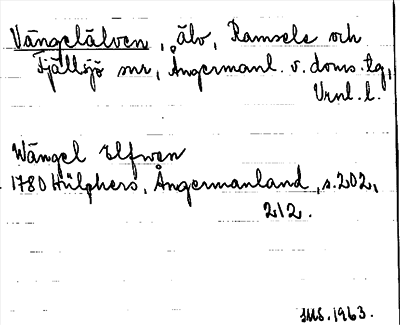 Vängelälven, älv, Ramsele och
Fjällsjö snr, Ångermanl. v. doms. tg,
Vrnl. l.
Wängel Elfwen
1780 Hülphers, Ångermanland, s. 202,
212.
JMS. 1963.